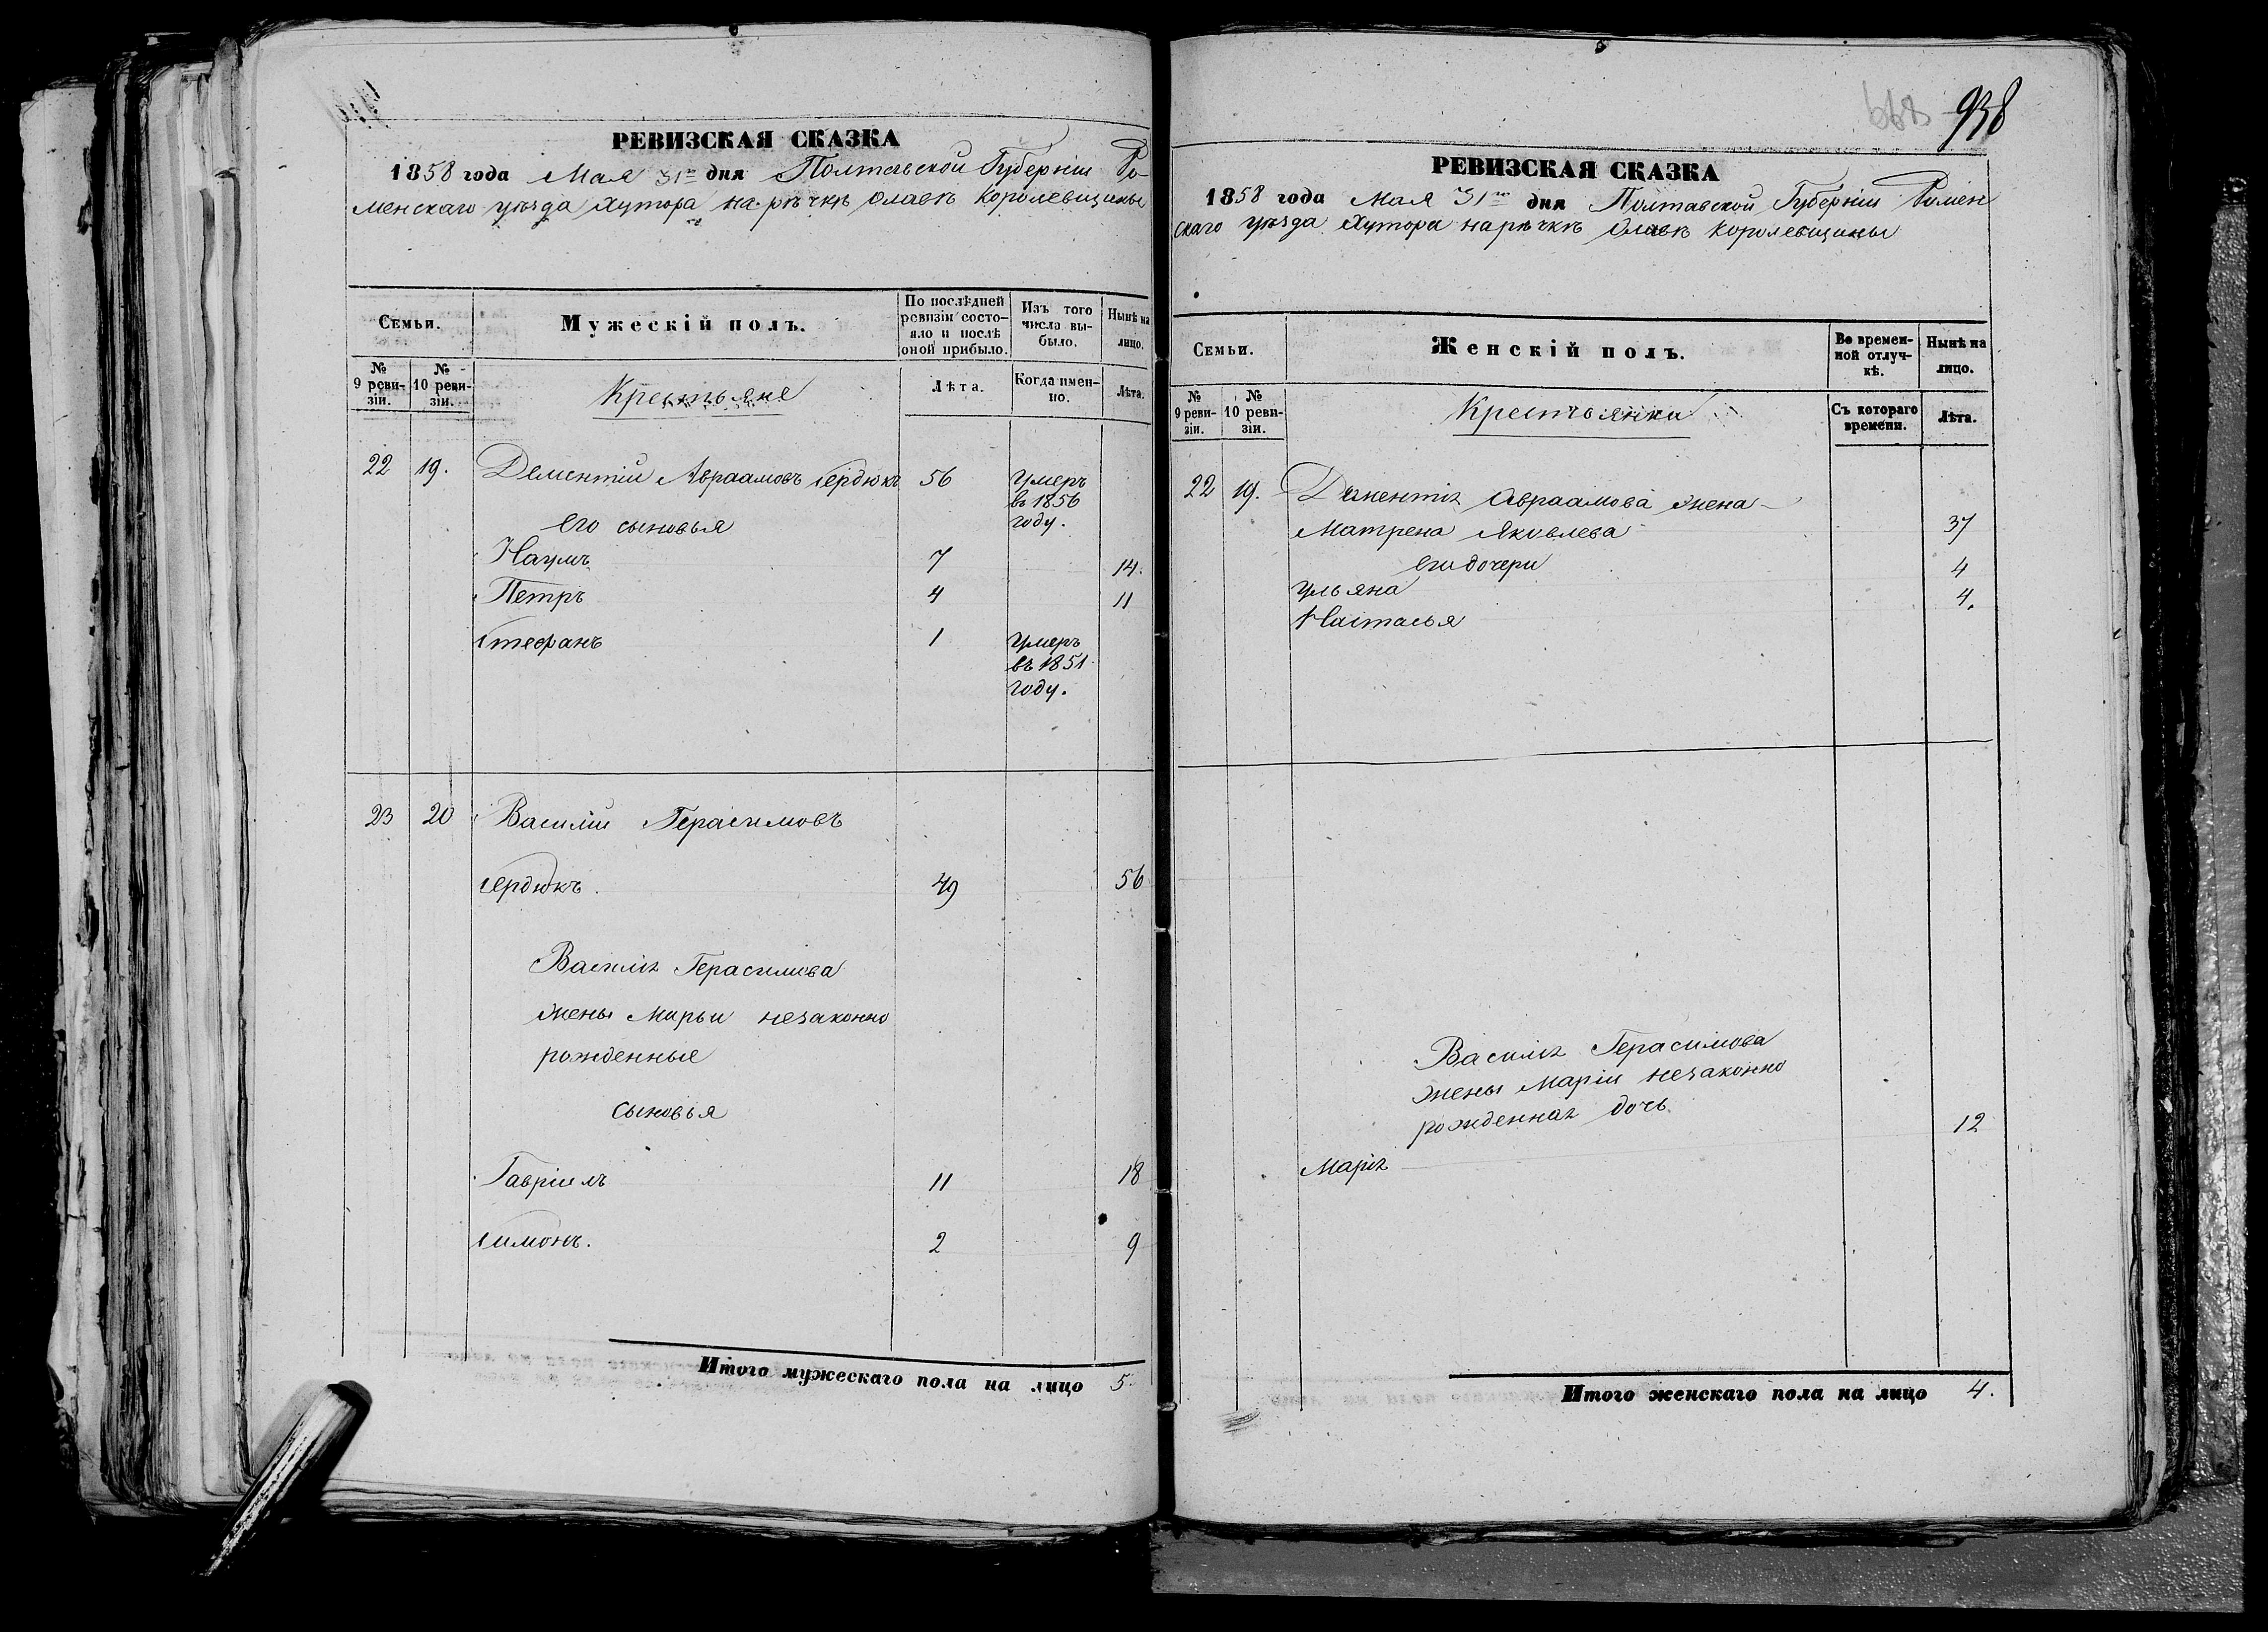 РЕВИЗСКАЯ СКАЗКА
1858 года Мая 31го дня Полтавской Губерніи Ро-
менскаго уѣзда Хутора на рѣчкѣ Олавѣ Королевщины
Семьи.
Мужескій полъ.
По послѣдней ревизіи состо-
яло и послѣ
оной прибыло.
Изъ того
числа вы-
было.
Нынѣ на
лицо.
№
9 реви-
зіи.
№
10 реви-
зіи.
Крестьяне
Лѣта.
Когда имен-
но.
Лѣта.
22 19. Дементій Авраамовъ Сердюкъ 56 Умеръ
въ 1856
году.
его сыновья
Наумъ 7 14.
Петръ 4 11
Стефанъ 1 Умеръ
въ 1851
году.
23 20 Василій Герасимовъ
Сердюкъ. 49 56
Василія Герасимова
жены Марьи незаконно
рожденные
сыновья
Гавріилъ 11 18
Симонъ. 2 9
Итого мужескаго пола на лицо 5.
668 938
РЕВИЗСКАЯ СКАЗКА
1858 года Мая 31го дня Полтавской Губерніи Ромен
скаго уѣзда Хутора на рѣчкѣ Олавѣ Королевщины
Семьи.
Женскій полъ.
Во времен-
ной отлуч-
кѣ.
Нынѣ на
лицо.
№
9 реви-
зіи.
№
10 реви-
зіи.
Крестьянки
Съ котораго
времени.
Лѣта.
22 19. Дементія Авраамова жена
Матрена Яковлева 37
его дочери
Ульяна 4
Настасья 4.
Василія Герасимова
жены Маріи незаконно
рожденная дочь
Марія 12
Итого женскаго пола на лицо 4.